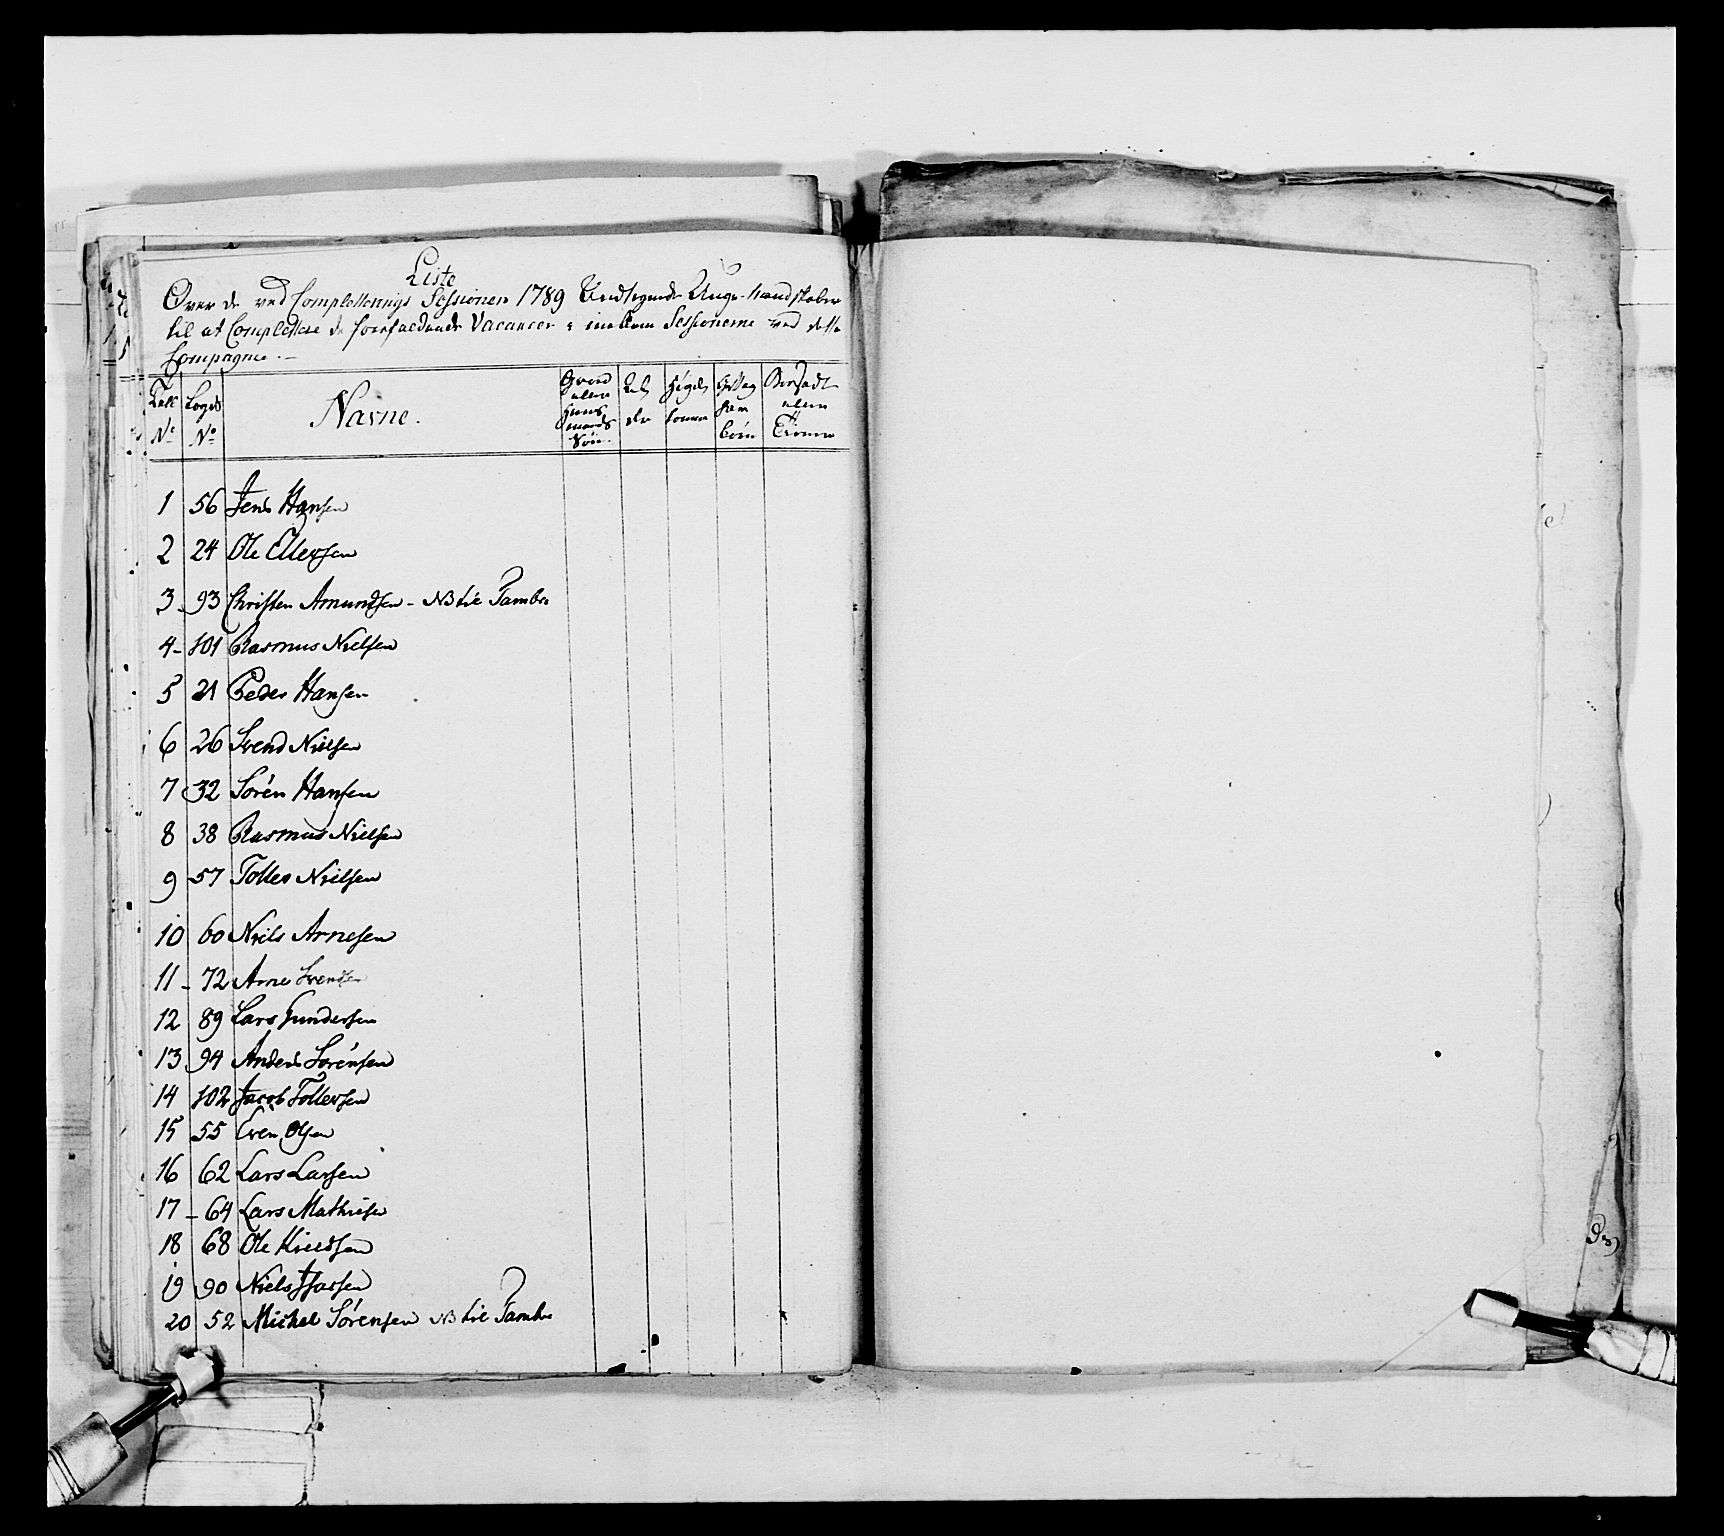 Liste
Over de ved Completterings Sessionen 1789 Unge Mandskaber
til at Complettere de forefaldende Vacancer imellem Sessionerne ved dette
Compagnie.
Tall No Logds No Navne. Alder
1 56 Jens Hansen
2 24 Ole Ellefsen
3 93 Christen Amundsen - NB til Tambr
4 101 Rasmus Nielsen
5 21 Peder Hansen
6 26 Svend Nielsen
7 32 Sören Hansen
8 38 Rasmus Nielsen
9 57 Tolles Nielsen
10 60 Niels Arnesen
11 72 Arne Svendsen
12 89 Lars Gundersen
13 94 Anders Sörensen
14 102 Jacob Tollersen
15 55 Even Olsen
16 62 Lars Larsen
17 64 Lars Mathisen
18 68 Ole Knudsen
19 90 Niels
20 52 Michel Sörensen NB til Tambr